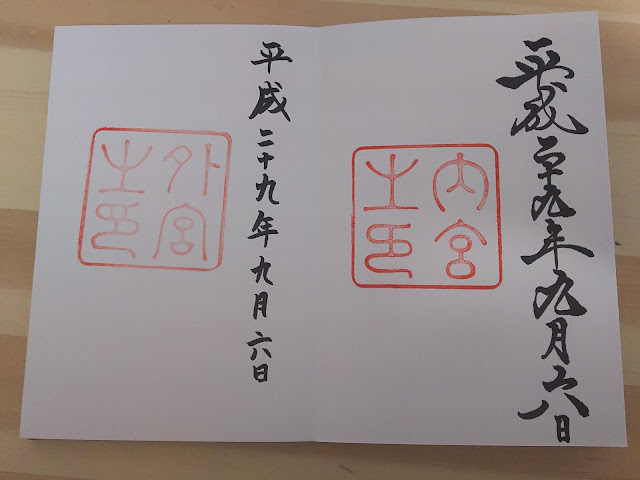 平成二十九年九月六日
内宮
之印
平成二十九年九月六日
外宮
之印